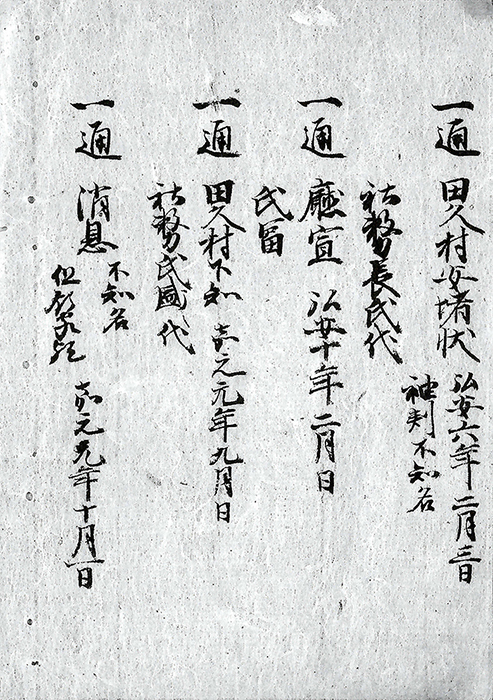 一通 田久村安堵状 弘安六年二月三日
袖判不知名
社務長氏代
一通 廳宣 弘安十年二月日
氏冨
一通 田久村下知 嘉元元年九月日
社務氏國代
一通 消息 不知名 嘉元元年十月一日
但